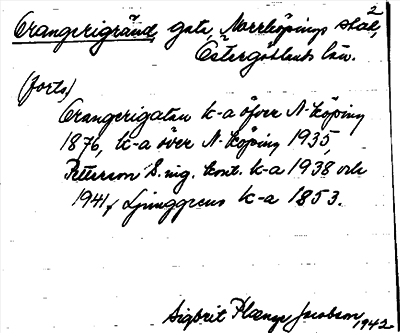 2
Orangerigränd, gata, Norrköpings stad,
Östergötlands län.
(forts)
Orangerigatan k-a öfver N-köping
1876, k-a över N-köping 1935,
Petterson S. ing. kont. k-a 1938 och
1941, Ljunggrens k-a 1853.
Sigbrit Plænge Jacobson
1942